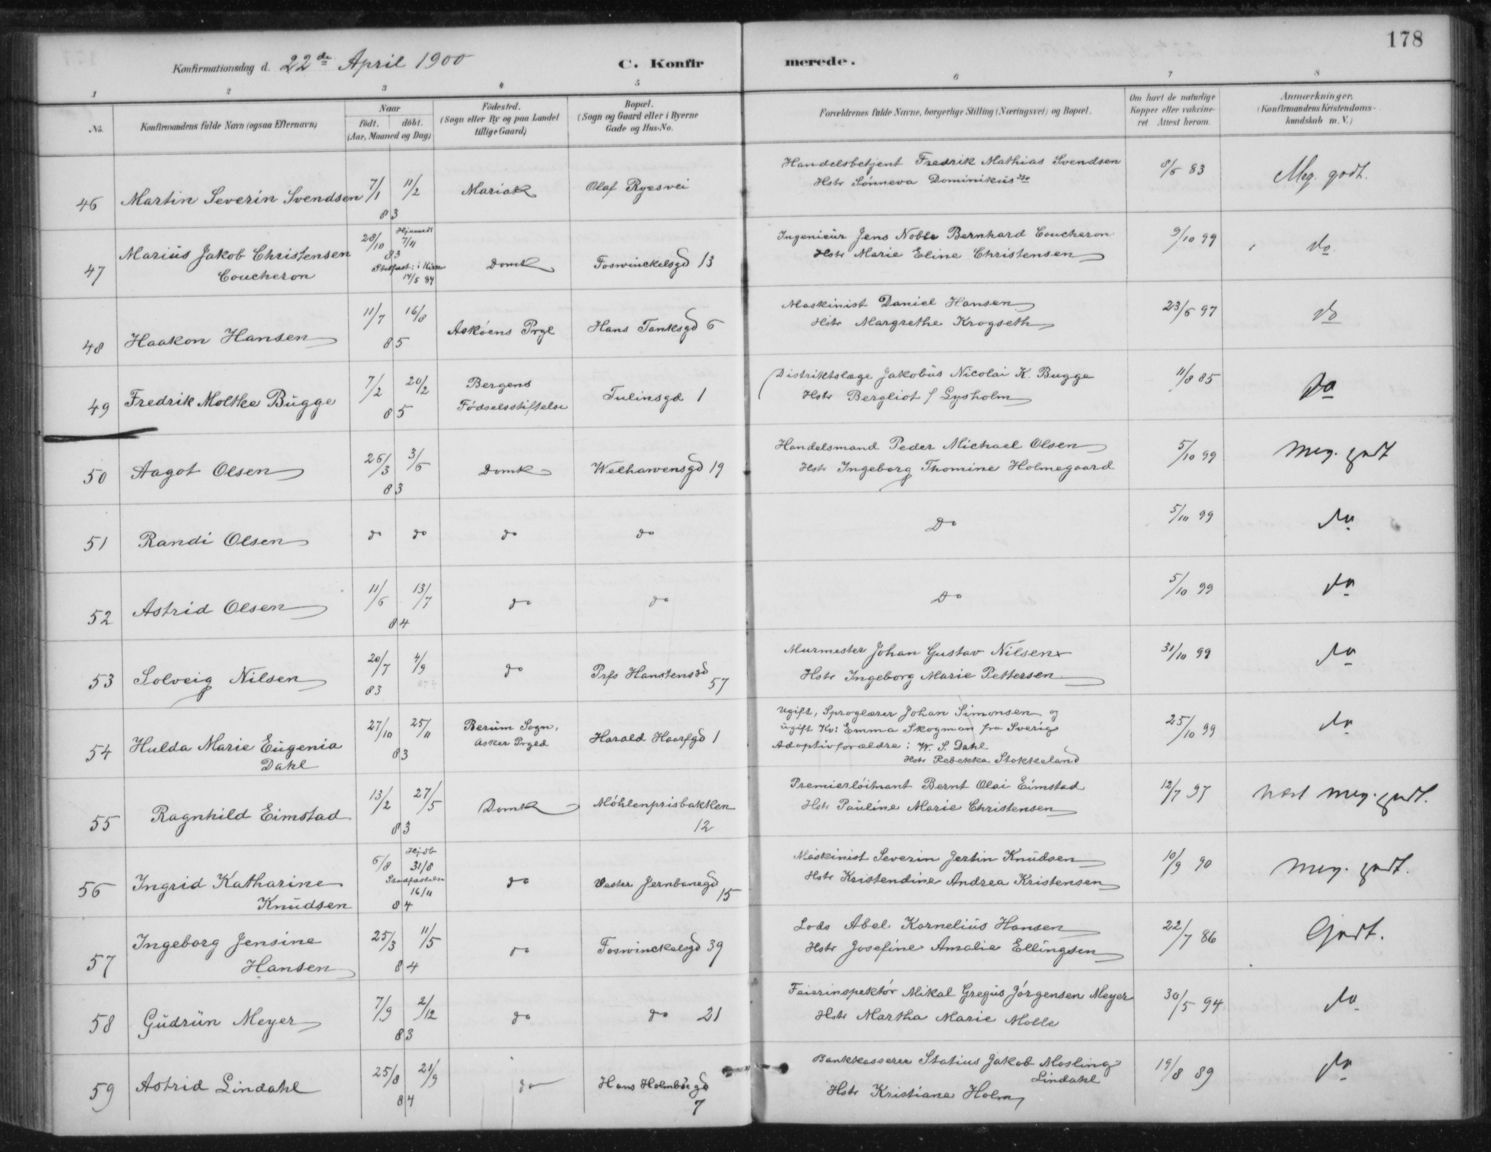 178
Konfirmationsdag d. 22de April 1900 C. Konfirmerede.
1 2 3 4 5 6 7 8
No. Konfirmandens fulde Navn (ogsaa Efternavn) Naar Født. døbt. (Aar, Maaned og Dag) Fødested. (Sogn eller By og paa Landet tillige Gaard) Bopæl. (Sogn og Gaard eller i Byerne Gade og Hus-No. Forældrenes fulde Navne, borgerlige Stilling (Næringsvei) og Bopæl. Om havt de naturlige Kopper eller vaccineret Attest herom. Anmærkninger. (Konfirmandens Kristendomskundskab m. V.)
46 Martin Severin Svendsen 7/1 11/2 83 Mariak Olaf Ryesvei Handelsbetjent Fredrik Mathias Svendsen
Hstr Sønneva Dominikusdtr 8/6 83 Meg. godt.
47 Marius Jakob Christensen
Coucheron 28/10 Hjemmedt 7/11 83 Stadfæst. i Kirken 14/5 84 Domk Foswinckelsgd 13 Ingenieur Jens Noble Bernhard Coucheron
Hstr Marie Eline Christensen 9/10 99 do
48 Haakon Hansen 11/7 16/8 85 Askøens Prgl Hans Tanksgd 6 Maskinist Daniel Hansen
Hstr Margrethe Krogseth 23/6 97 do
49 Fredrik Moltke Bugge 7/2 20/2 85 Bergens
Fødselsstiftelse Tulinsgd 1 Distriktslæge Jakobus Nicolai K. Bugge
Hstr Bergliot f Lysholm 11/8 85 do
50 Aagot Olsen 26/3 3/6 83 Domk Welhavensgd 19 Handelsmand Peder Michael Olsen
Hstr Ingeborg Thomine Holmegaard 5/10 99 Meg. godt
51 Randi Olsen do do do do Do 5/10 99 do
52 Astrid Olsen 11/6 13/7 84 do do Do 5/10 99 do
53 Solveig Nilsen 20/7 4/9 83 do Prfs Hansteensgd 57 Murmester Johan Gustav Nilsen
Hstr Ingeborg Marie Pettersen 31/10 99 do
54 Hulda Marie Eugenia
Dahl 27/10 25/11 83 Berum Sogn,
Asker Prgld Harald Haarfgd 1 Ugift, Sproglærer Johan Simonsen og
ugift Kv: Emma Skogman fra Sverig
Adoptivforældre: W. S. Dahl
Hstr Rebekka Stokkeland 25/10 99 do
55 Ragnhild Eimstad 13/2 27/5 83 Domk Møhlenprisbakken 12 Premierløitnant Bernt Olai Eimstad
Hstr Pauline Marie Christensen 12/7 97 næst meg. godt.
56 Ingrid Katharine
Knudsen 6/8 Hjdt 31/8 Stadfæstelse 16/11 84 do Vester Jernbanegd 15 Maskinist Severin Jertin Knudsen
Hstr Kristendine Andrea Kristensen 10/9 90 Meg. godt.
57 Ingeborg Jensine
Hansen 25/3 11/5 84 do Foswinckelsgd 39 Lods Abel Kornelius Hansen
Hstr Josefine Amalie Ellingsen 22/7 86 Godt.
58 Gudrun Meyer 7/9 2/12 83 do do 21 Feierinspektør Mikal Gregus Jørgensen Meyer
Hstr Martha Marie Molle 30/5 94 do
59 Astrid Lindahl 25/8 21/9 84 do Hans Holmboegd 7 Bankkasserer Statius Jakob Mosling
Lindahl
Hstr Kristiane Holm 19/8 89 do